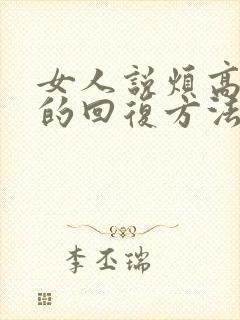 女人説煩高
的回復方法
李丕瑞